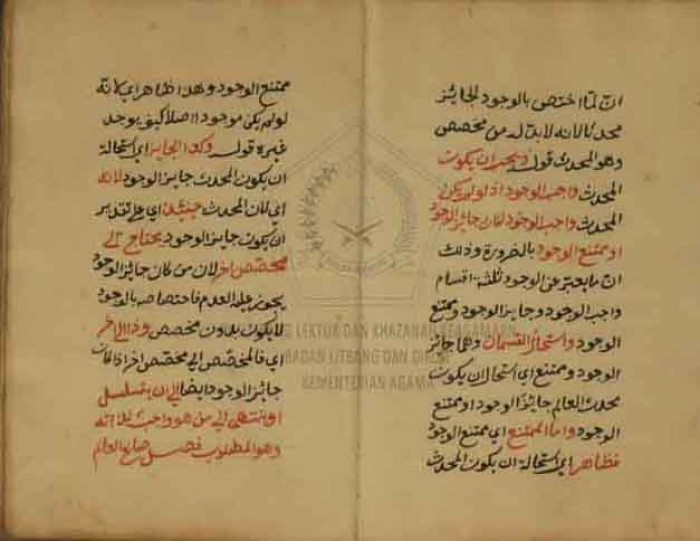 ان لما اختص بالوجود الجايز
محدثا لانه لا بد له من مخصص
وهو المحدث قوله ويجب ان يكون
المحدث واجب الوجود اذ لو لم يكن
المحدث واجب الوجود لكان جايز الوجود
او ممتنع الوجود بالضرورة وذلك
ان ما يعبر عن الوجود ثلثة اقسام
واجب الوجود وجايز الوجود وممتنع
الوجود واستحال القسمان وهما جائز
الوجود وممتنع اي استحال ان يكون
محدث العالم جايز الوجود او ممتنع
الوجود واما الممتنع اي ممتنع الوجود
فظاهر اي استحالة ان يكون المحدث
ممتنع الوجود وهذا ظاهر اي لانه
لو لم يكن موجودا اصلا كيف يوجد
غيره قوله وكذا الجايز اي استحالة
ان يكون المحدث جايز الوجود لانه
اي لان المحدث حينئذ اي على تقدير
ان يكون جايز الوجود يحتاج الى
مخصص اخر لان من كان جايز الوجود
يجوز عليه العدم فاختصاصه بالوجود
لا يكون بدون مخصص وذا الاخر
اي فالمخصص الى مخصص اخر اذا كان
جايز الوجود ايضا الى ان يتسلسل
او ينتهى الى من هو واجب لذاته
وهو المطلوب فصل صانع العالم
LEKTUR DAN KHAZANAH KEAGAMAAN
BADAN LITBANG DAN DIKLAT
KEMENTERIAN AGAMA